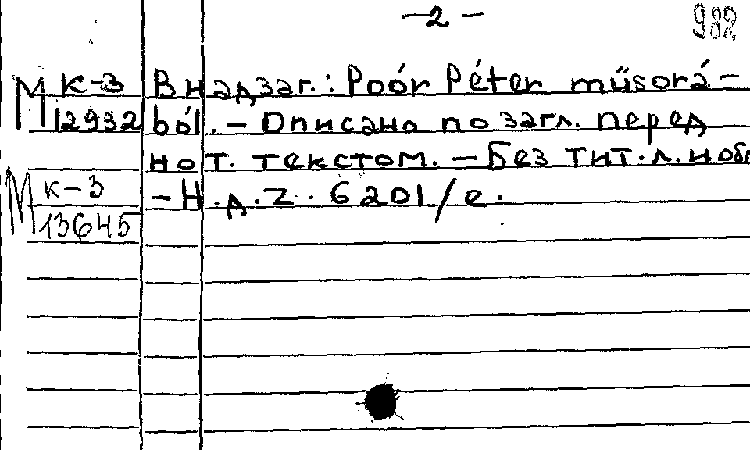 — 2 —
982
М К-3 В надзаг.: Poór Péter műsorá-
12932 ból. — Описано по загл. перед
нот. текстом. — Без тит. л. и обл.
М К-3 — Н. д. Z. 6201/e.
13645